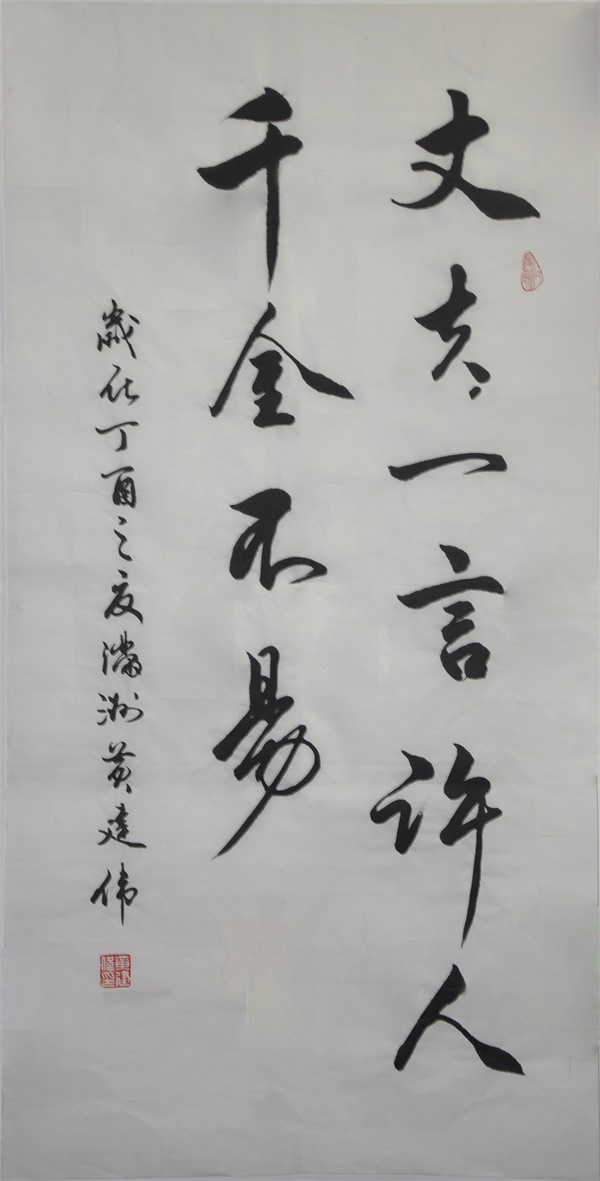 丈夫一言许人
千金不易
歲在丁酉之夏滿洲黄建伟